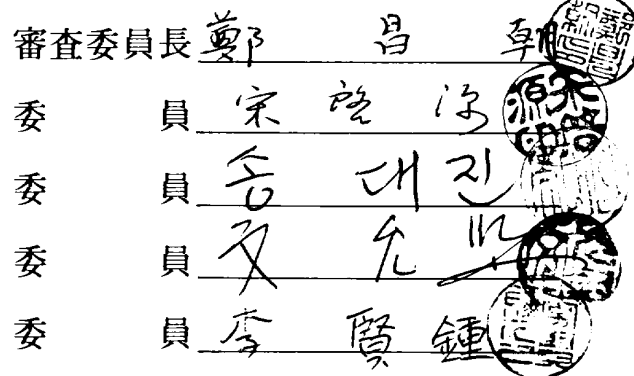 審査委員長 鄭 昌 朝
委 員 宋 啓 源
委 員 송 대진
委 員 文 允
委 員 李 賢 鍾